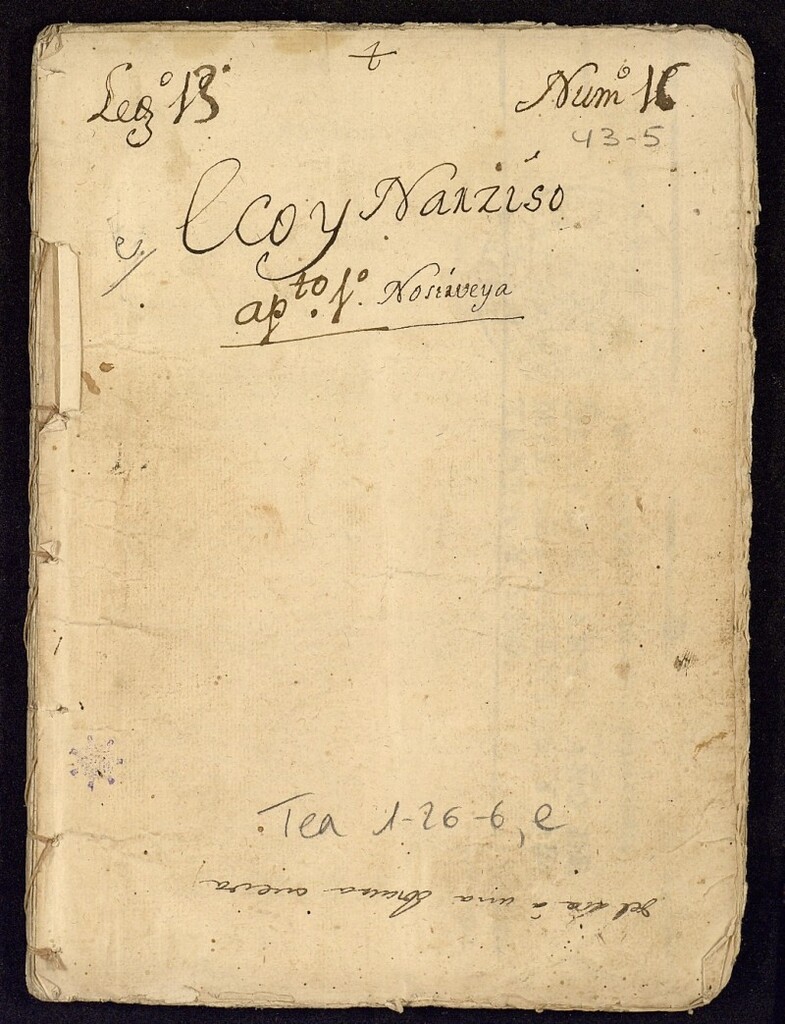 +
Leg.º 13º Num.º 16
43-5
e, Eco y Narziso
apto. 1º. Nosirveya
Tea 1-26-6, e
del dia â una